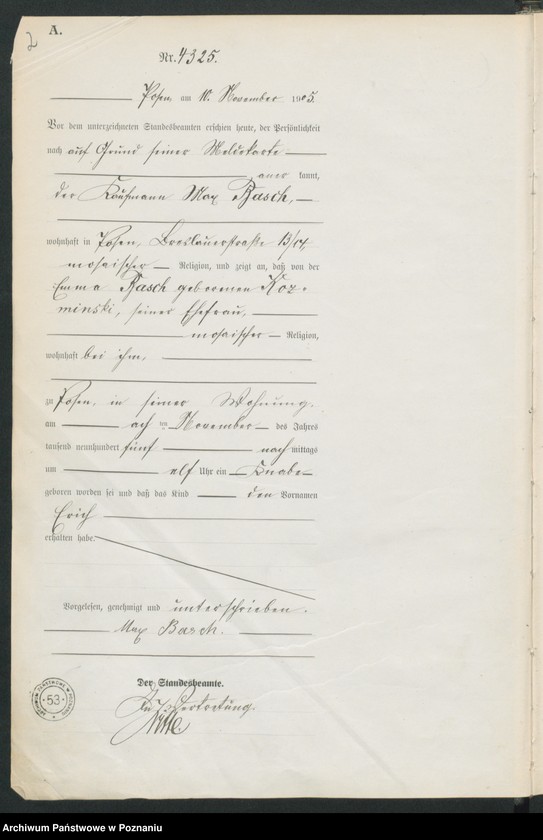 2
A.
Nr. 4325.
Posen, am 10. November 1905.
Vor dem unterzeichneten Standesbeamten erschien heute, der Persönlichkeit
nach auf Grund seiner Meldekarte
aner kannt,
der Kaufmann Max Basch,
wohnhaft in Posen, Breslauerstraße 13/14,
mosaischer Religion, und zeigt an, daß von der
Emma Basch geborenen Koz-
minski, seiner Ehefrau,
mosaischer Religion,
wohnhaft bei ihm,
zu Posen, in seiner Wohnung,
am acht ten November des Jahres
tausend neunhundert fünf nach mittags
um elf Uhr ein Knabe
geboren worden sei und daß das Kind den Vornamen
Erich
erhalten habe.
Vorgelesen, genehmigt und unterschrieben.
Max Basch.
Der Standesbeamte.
In Vertretung.
53
Archiwum Państwowe w Poznaniu